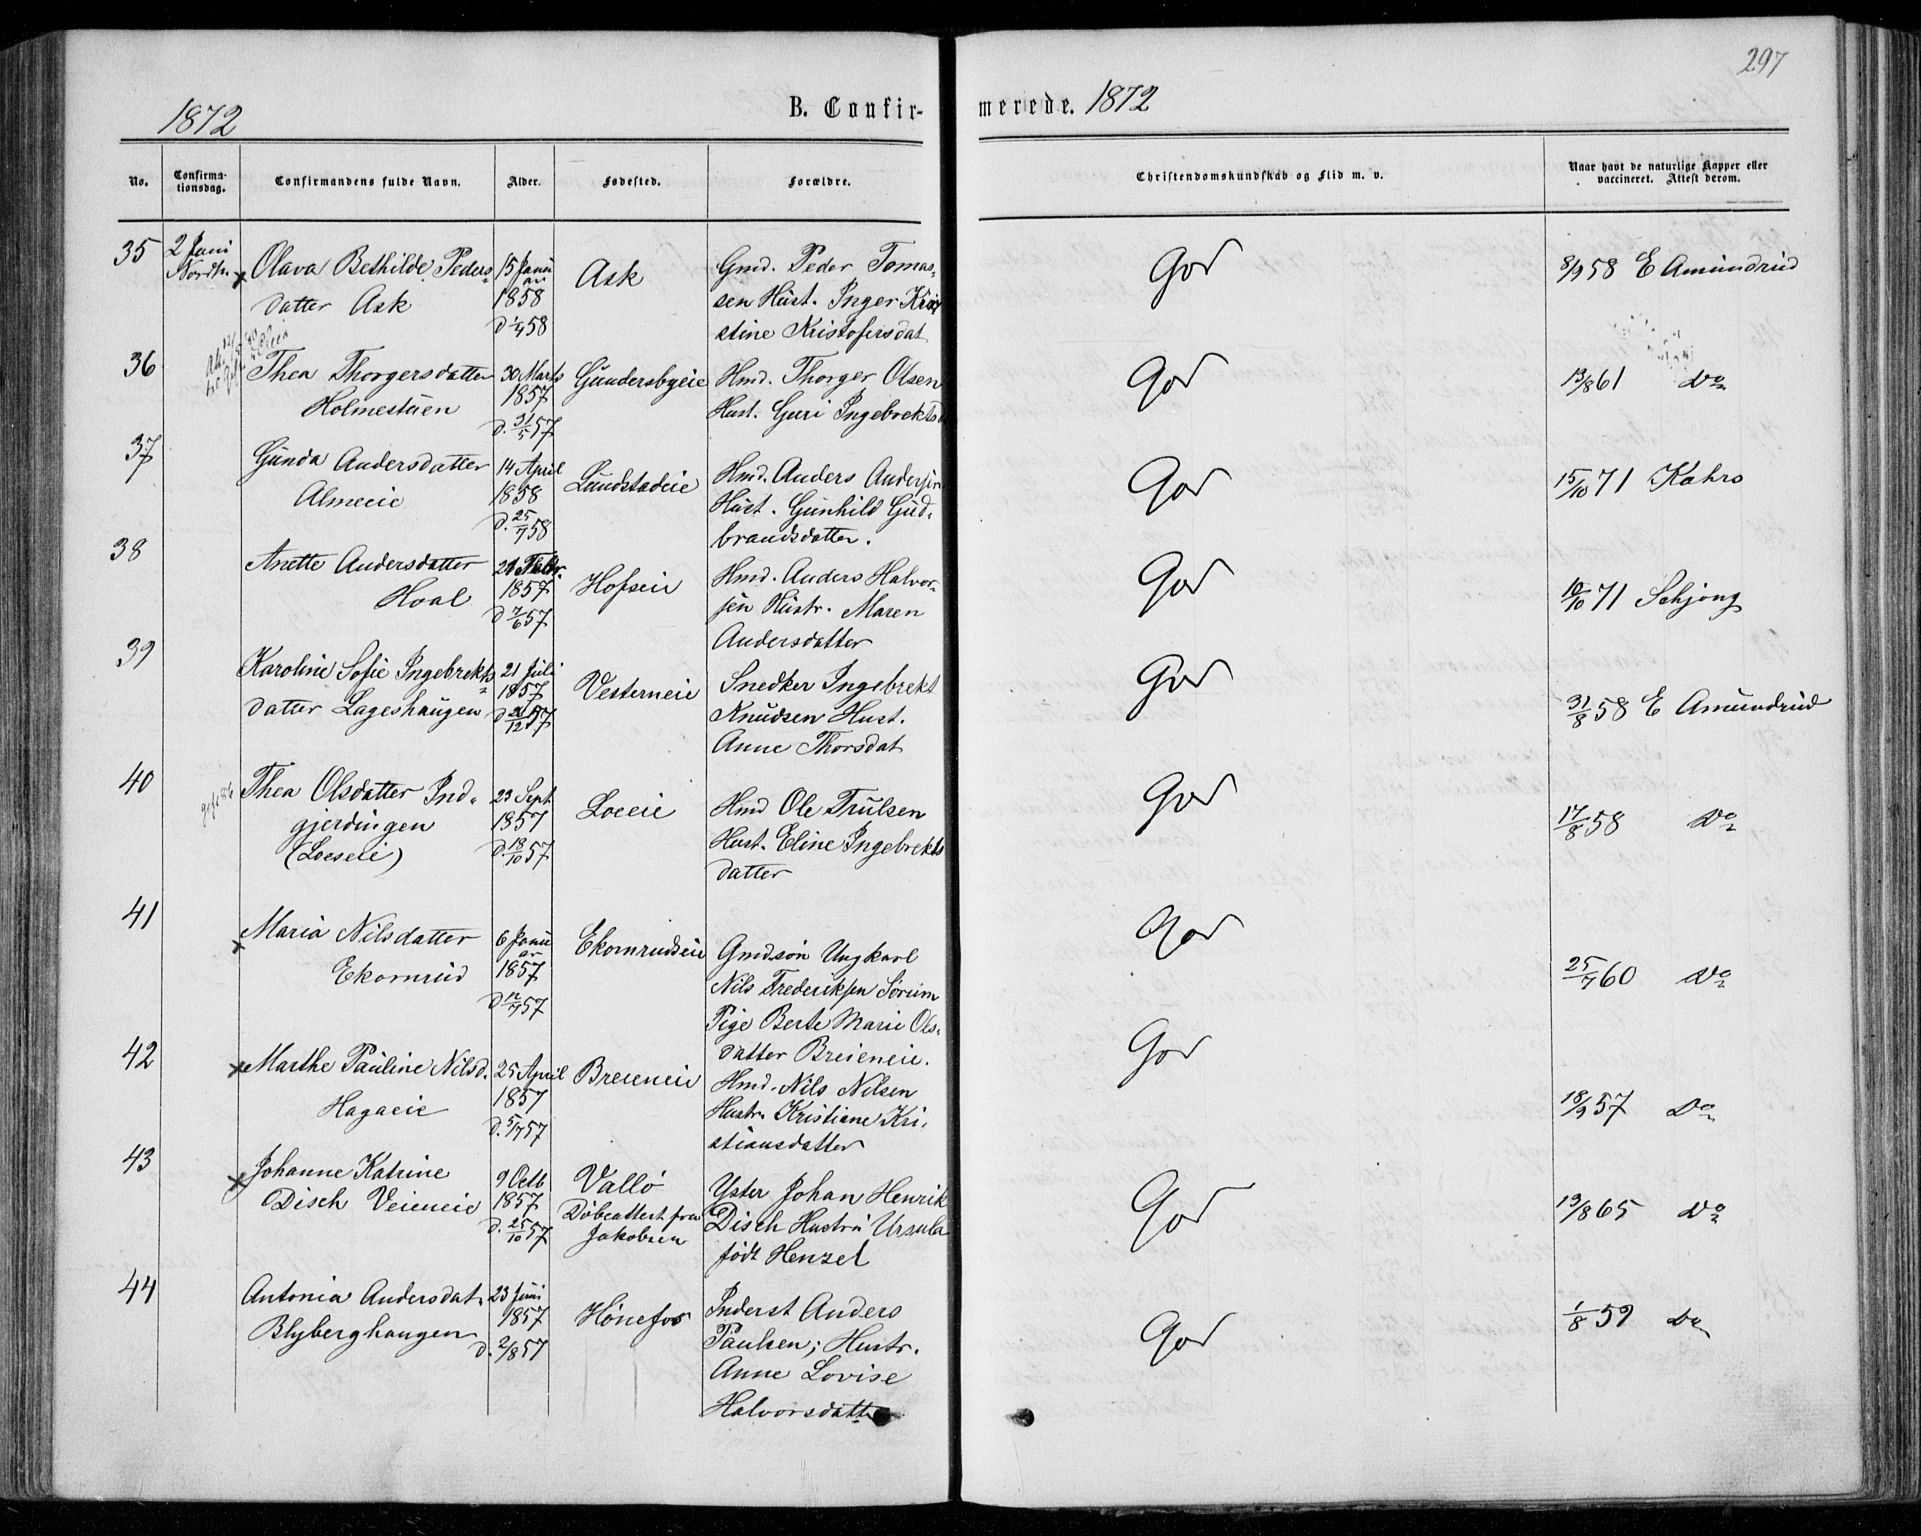 297
1872
B. Confir-
merede. 1872
No.
Confirma-
tionsdag.
Confirmandens fulde Navn.
Alder.
Fødested.
Forældre.
Christendomskundskab og Flid m. v.
Naar havt de naturlige Kopper eller
vaccineret. Attest derom.
35
2 Juni
Nordh.
x Olava Bethilde Peders-
datter Ask
15 Janu
ar
1858
d 1/4 58
Ask
Gmd. Peder Tomas-
sen Hust. Inger Kri
stine Kristofersdat
God
8/9 58 E Amundrud
36
Thea Thorgersdatter
Holmestuen
30 Marts
1857
d. 31/5 57
Gundersbyeie
Hmd. Thorger Olsen
Hust. Guri Ingebrektsd
God
13/8 61 Do
37
Gunda Andersdatter
Almeeie
14 April
1858
d. 25/7 58
Lundstadeie
Hmd. Anders Andersen
Hust. Gunhild Gud-
brandsdatter.
God
15/10 71 Kahrs
38
Anette Andersdatter
Hoal
21 Febr.
1857
d 7/6 57
Hofseie
Hmd. Anders Halvor-
sen Hustr. Maren
Andersdatter
God
10/10 71 Schjong
39
Karoline Sofie Ingebrekts-
datter Lageshaugen
21 Juli
1857
d 26/12 57
Vesterneie
Snedker Ingebrekt
Knudsen Hust.
Anne Thorsdat
God
31/8 58 E Amundrud
40
Thea Olsdatter Ind-
gjerdingen
(Loeseie)
23 Sept
1857
d. 18/10 57
Loeeie
Hmd Ole Trulsen
Hust. Eline Ingebrekts
datter
God
17/8 58 Do
41
x Maria Nilsdatter
Ekornrud
6 Janu
ar
1857
d 12/7 57
Ekornrudseie
Gmdsøn Ungkarl
Nils Frederiksen Sørum
Pige Berte Marie Ols-
datter Breieneie.
God
25/7 60 Do
42
x Marthe Pauline Nilsd.
Hagaeie
25 April
1857
d. 5/7 57
Breieneie
Hmd. Nils Nilsen
Hustr. Kristiane Kri-
stiansdatter
God
18/9 57 Do
43
x Johanne Katrine
Disch Veieneie
9 Octb
1857
d. 25/10 57
Vallø
Døbeattest fra
Jakobsen
Yster Johan Henrik
Disch Hustru Ursula
født Henzel
God
13/8 65 Do
44
Antonia Andersdat.
Blyberghaugen
23 Juni
1857
d. 2/8 57
Hønefos
Inderst Anders
Paulsen; Hustr.
Anne Lovise
Halvorsdatt
God
1/8 59 Do